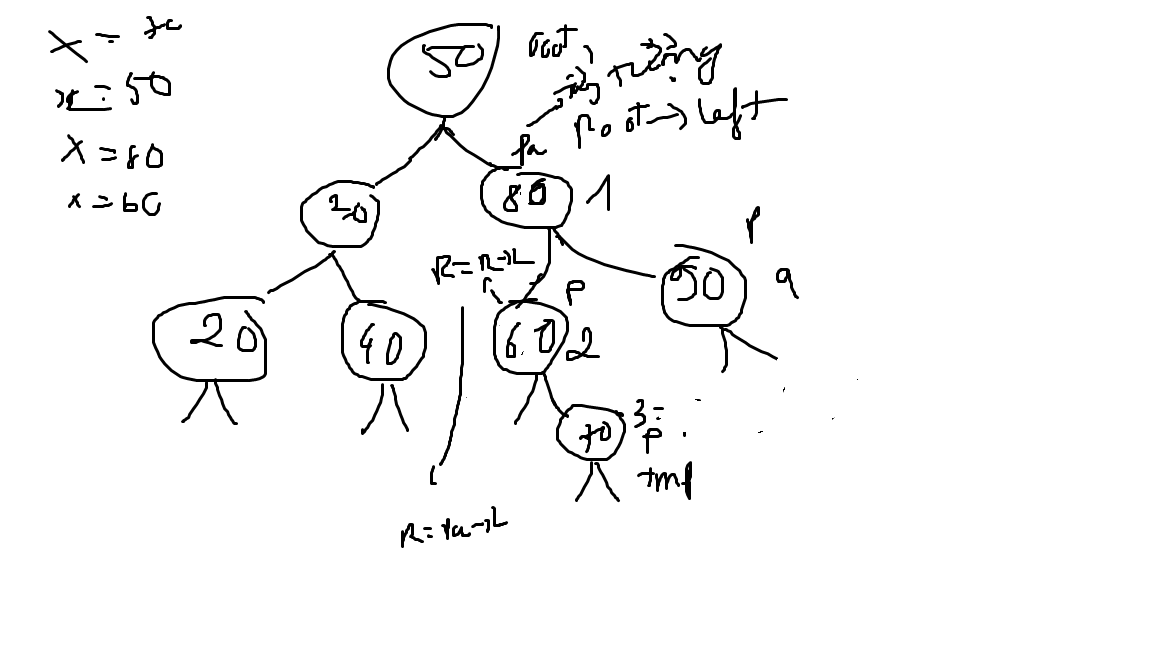 X =
x = 50
X = 80
x = 60
50
root
string
Root → left
Pa
30
80
1
P
R = R→L
r
P
90
q
20
40
60
2
70
3 =
P
tmp
R = Pa→L